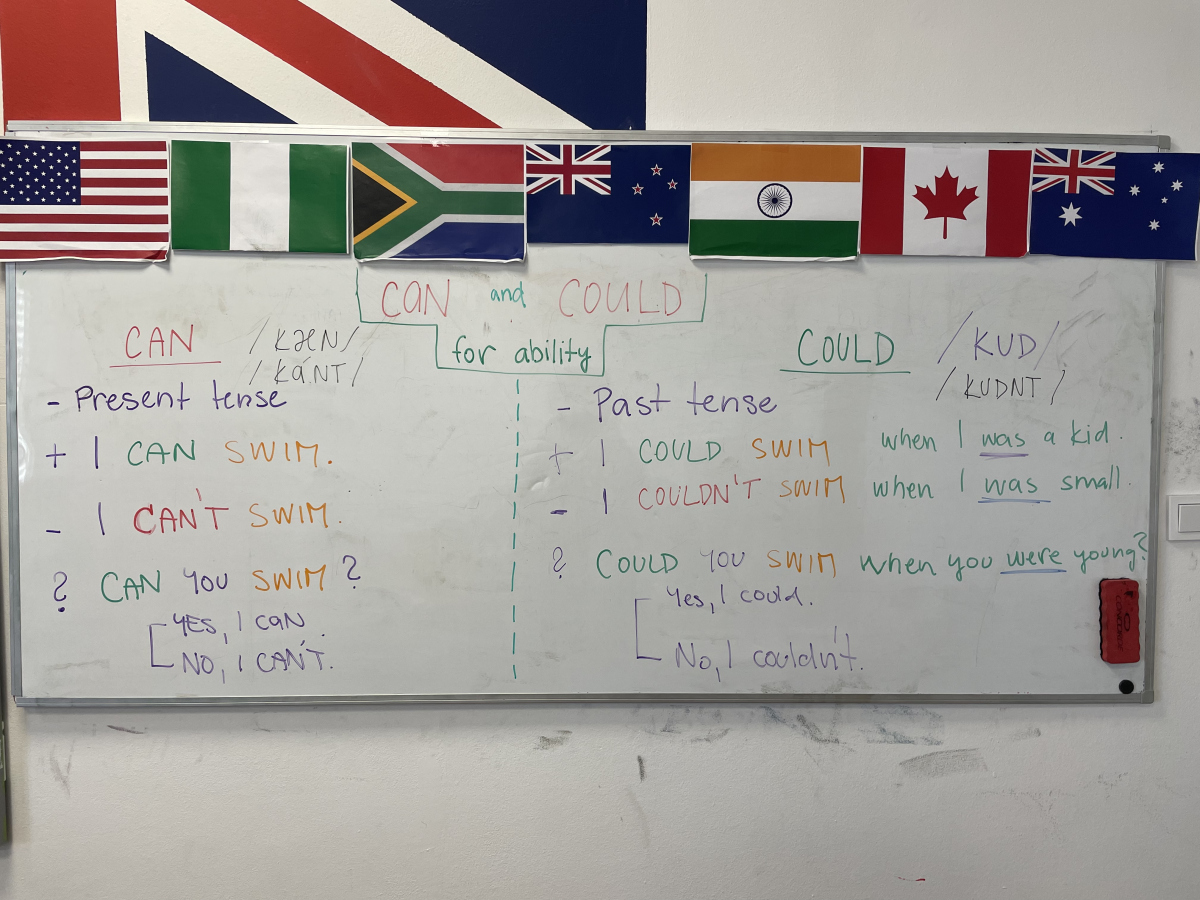 CAN and COULD
for ability
CAN /KÆN/
/KÁNT/
- Present tense
+ I CAN SWIM.
- I CAN'T SWIM.
? CAN YOU SWIM ?
YES, I CAN.
NO, I CAN'T.
COULD /KUD/
/KUDNT/
- Past tense
+ I COULD SWIM when I was a kid.
- I COULDN'T SWIM when I was small.
? COULD YOU SWIM when you were young?
Yes, I could.
No, I couldn't.